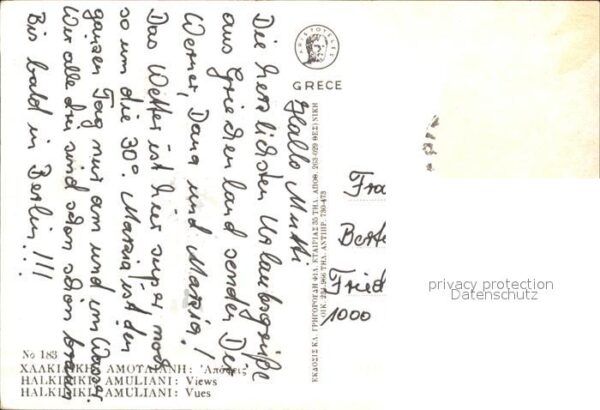 Hallo Mutti
Die herzlichsten Urlaubsgrüße
aus Griechenland senden Dir
Werner, Dana und Maxia!
Das Wetter ist hier super noch
so um die 30°. Maxia ist den
ganzen Tag nur am und im Wasser.
Wir alle drei sind schon schön braun
Bis bald in Berlin!!!
ΑΡΙΣΤΟΤΕΛΗΣ
GRECE
ΕΚΔΟΣΙΣ ΚΛ. ΓΡΗΓΟΡΟΥΔΗ ΦΙΛ. ΕΤΑΙΡΙΑΣ 35 ΤΗΛ. ΑΠΟΘ. 263-029 ΘΕΣ)ΝΙΚΗ
ΤΗΛ. ΑΝΤΙΠΡ. 720-473
Fra
Fried
1000
privacy protection
Datenschutz
No 183
ΧΑΛΚΙΔΙΚΗ ΑΜΟΥΛΙΑΝΗ: Ἀπόψεις
HALKIDIKI AMULIANI: Views
HALKIDIKI AMULIANI: Vues